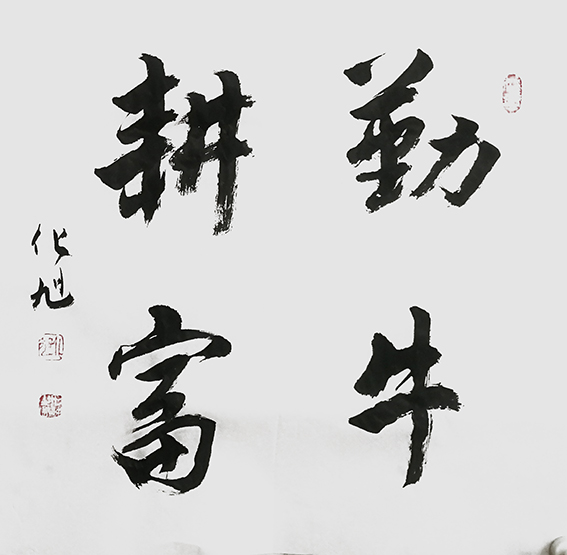 勤牛
耕富
化旭